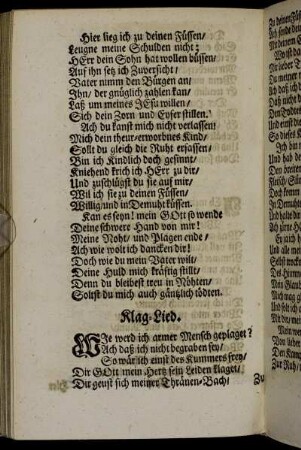 Hier lieg ich zu deinen Füssen/
Leugne meine Schulden nicht:
HErr dein Sohn hat wollen büssen/
Auf ihn setz ich Zuversicht/
Vater nimm den Bürgen an/
Ihn/ der gnüglich zahlen kan/
Laß um meines JEsu willen/
Sich dein Zorn und Eyfer stillen.
Ach du kanst mich nicht verlassen
Mich dein theur-erworbnes Kind/
Sollt du gleich die Ruht erfassen/
Bin ich Kindlich doch gesinnt/
Kniehend kriech ich HErr zu dir/
Und zuschlügst du sie auf mir/
Wil ich sie zu deinen Füssen/
Willig und in Demuht küssen.
Kan es seyn! mein GOtt so wende
Deine schwere Hand von mir!
Meine Noht/ und Plagen ende/
Ach wie wolt ich dancken dir!
Doch wie du mein Vater wilt/
Deine Huld mich kräftig stillt/
Denn du bleibest treu in Nöhten/
Soltst du mich auch gäntzlich tödten.
Klag-Lied.
WIe werd ich armer Mensch geplaget?
Ach daß ich nicht begraben sey/
So wär ich einst des Kummers frey/
Dir GOtt mein Hertz sein Leiden klaget/
Dir geust sich meiner Thränen-Bach/